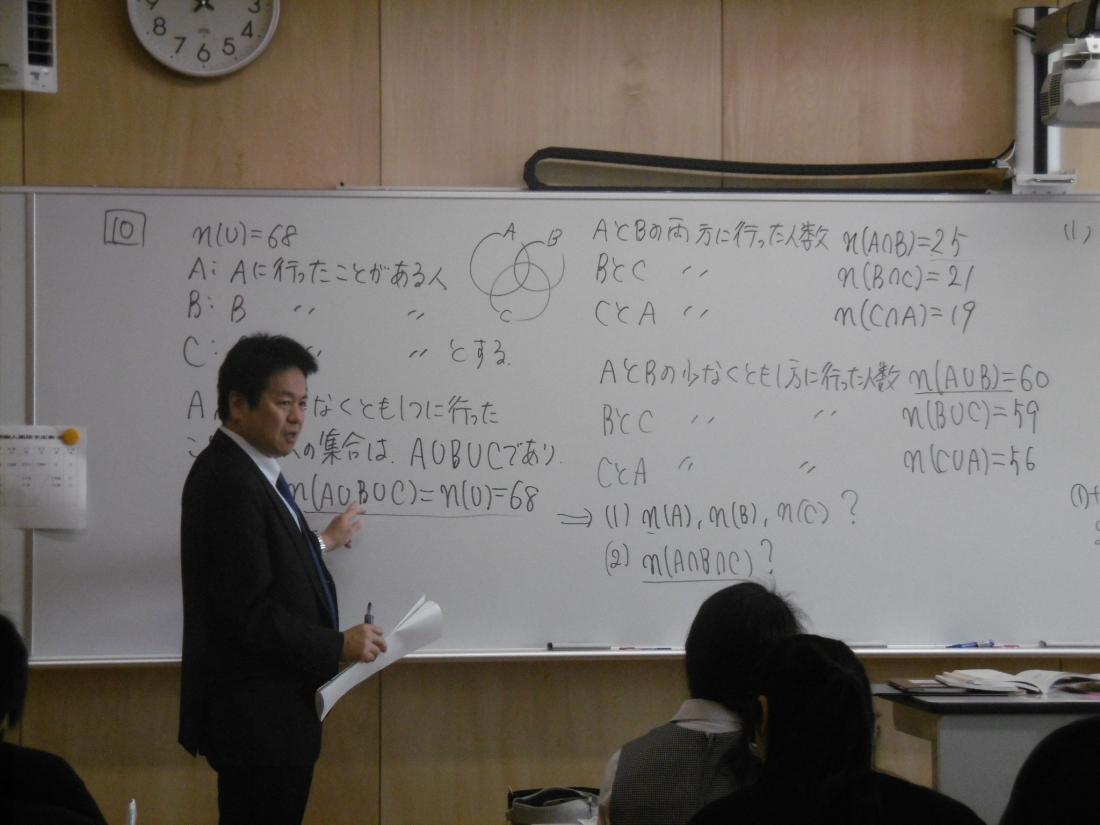 10
n(U)=68
A: Aに行ったことがある人
B: B 〃 〃
C: 〃 〃 とする.
A なくとも1つに行った
の集合は, A∪B∪Cであり,
n(A∪B∪C)=n(U)=68
A B C
AとBの両方に行った人数 n(A∩B)=25
BとC 〃 n(B∩C)=21
CとA 〃 n(C∩A)=19
AとBの少なくとも1方に行った人数 n(A∪B)=60
BとC 〃 〃 n(B∪C)=59
CとA 〃 〃 n(C∪A)=56
⇒ (1) n(A), n(B), n(C) ?
(2) n(A∩B∩C) ?
(1)
(1)
9 8 7 6 5 4 3